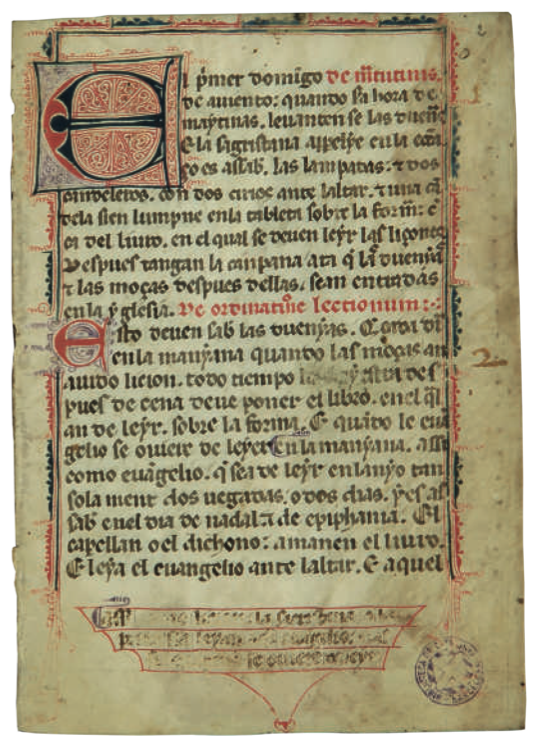 El p̄mer domīgo de m̄tutinis.
de auiento: quando sa hora de
maytinas. leuanten se las dueñ̄
E la sagristana appelye en la
ço es assab. las lampatas: ⁊ dos
candeleros. con dos cirios ante laltar. ⁊ una cā
dela sien lumpne enla tableta sobre la form̄: ē
ca del liuro. en el qual se deuen leyr las liçones
despues tangan la canpana ata q̄ las duenyas
⁊ las moças despues dellas. sean entradas
en la yglesia. De ordinatiōe lectionum:
Esto deuen sab las duenyas. Cada di
en la manyana quando las moças an
auido licion. todo tiempo des
pues de cena deue poner el libro. en el q̄l
an de leyr. sobre la forma. E quādo le euā
gelio se ouiere de leyer En la manyana. assi
como euāgelio. q̄ sea de leyr en lanyo tan
sola ment dos uegadas. o dos dias. yes as
sab enel dia de nadal ⁊ de epiphania. El
capellan o el dichono: amanen el liuro.
E leya el euangelio ante laltar. E aquel